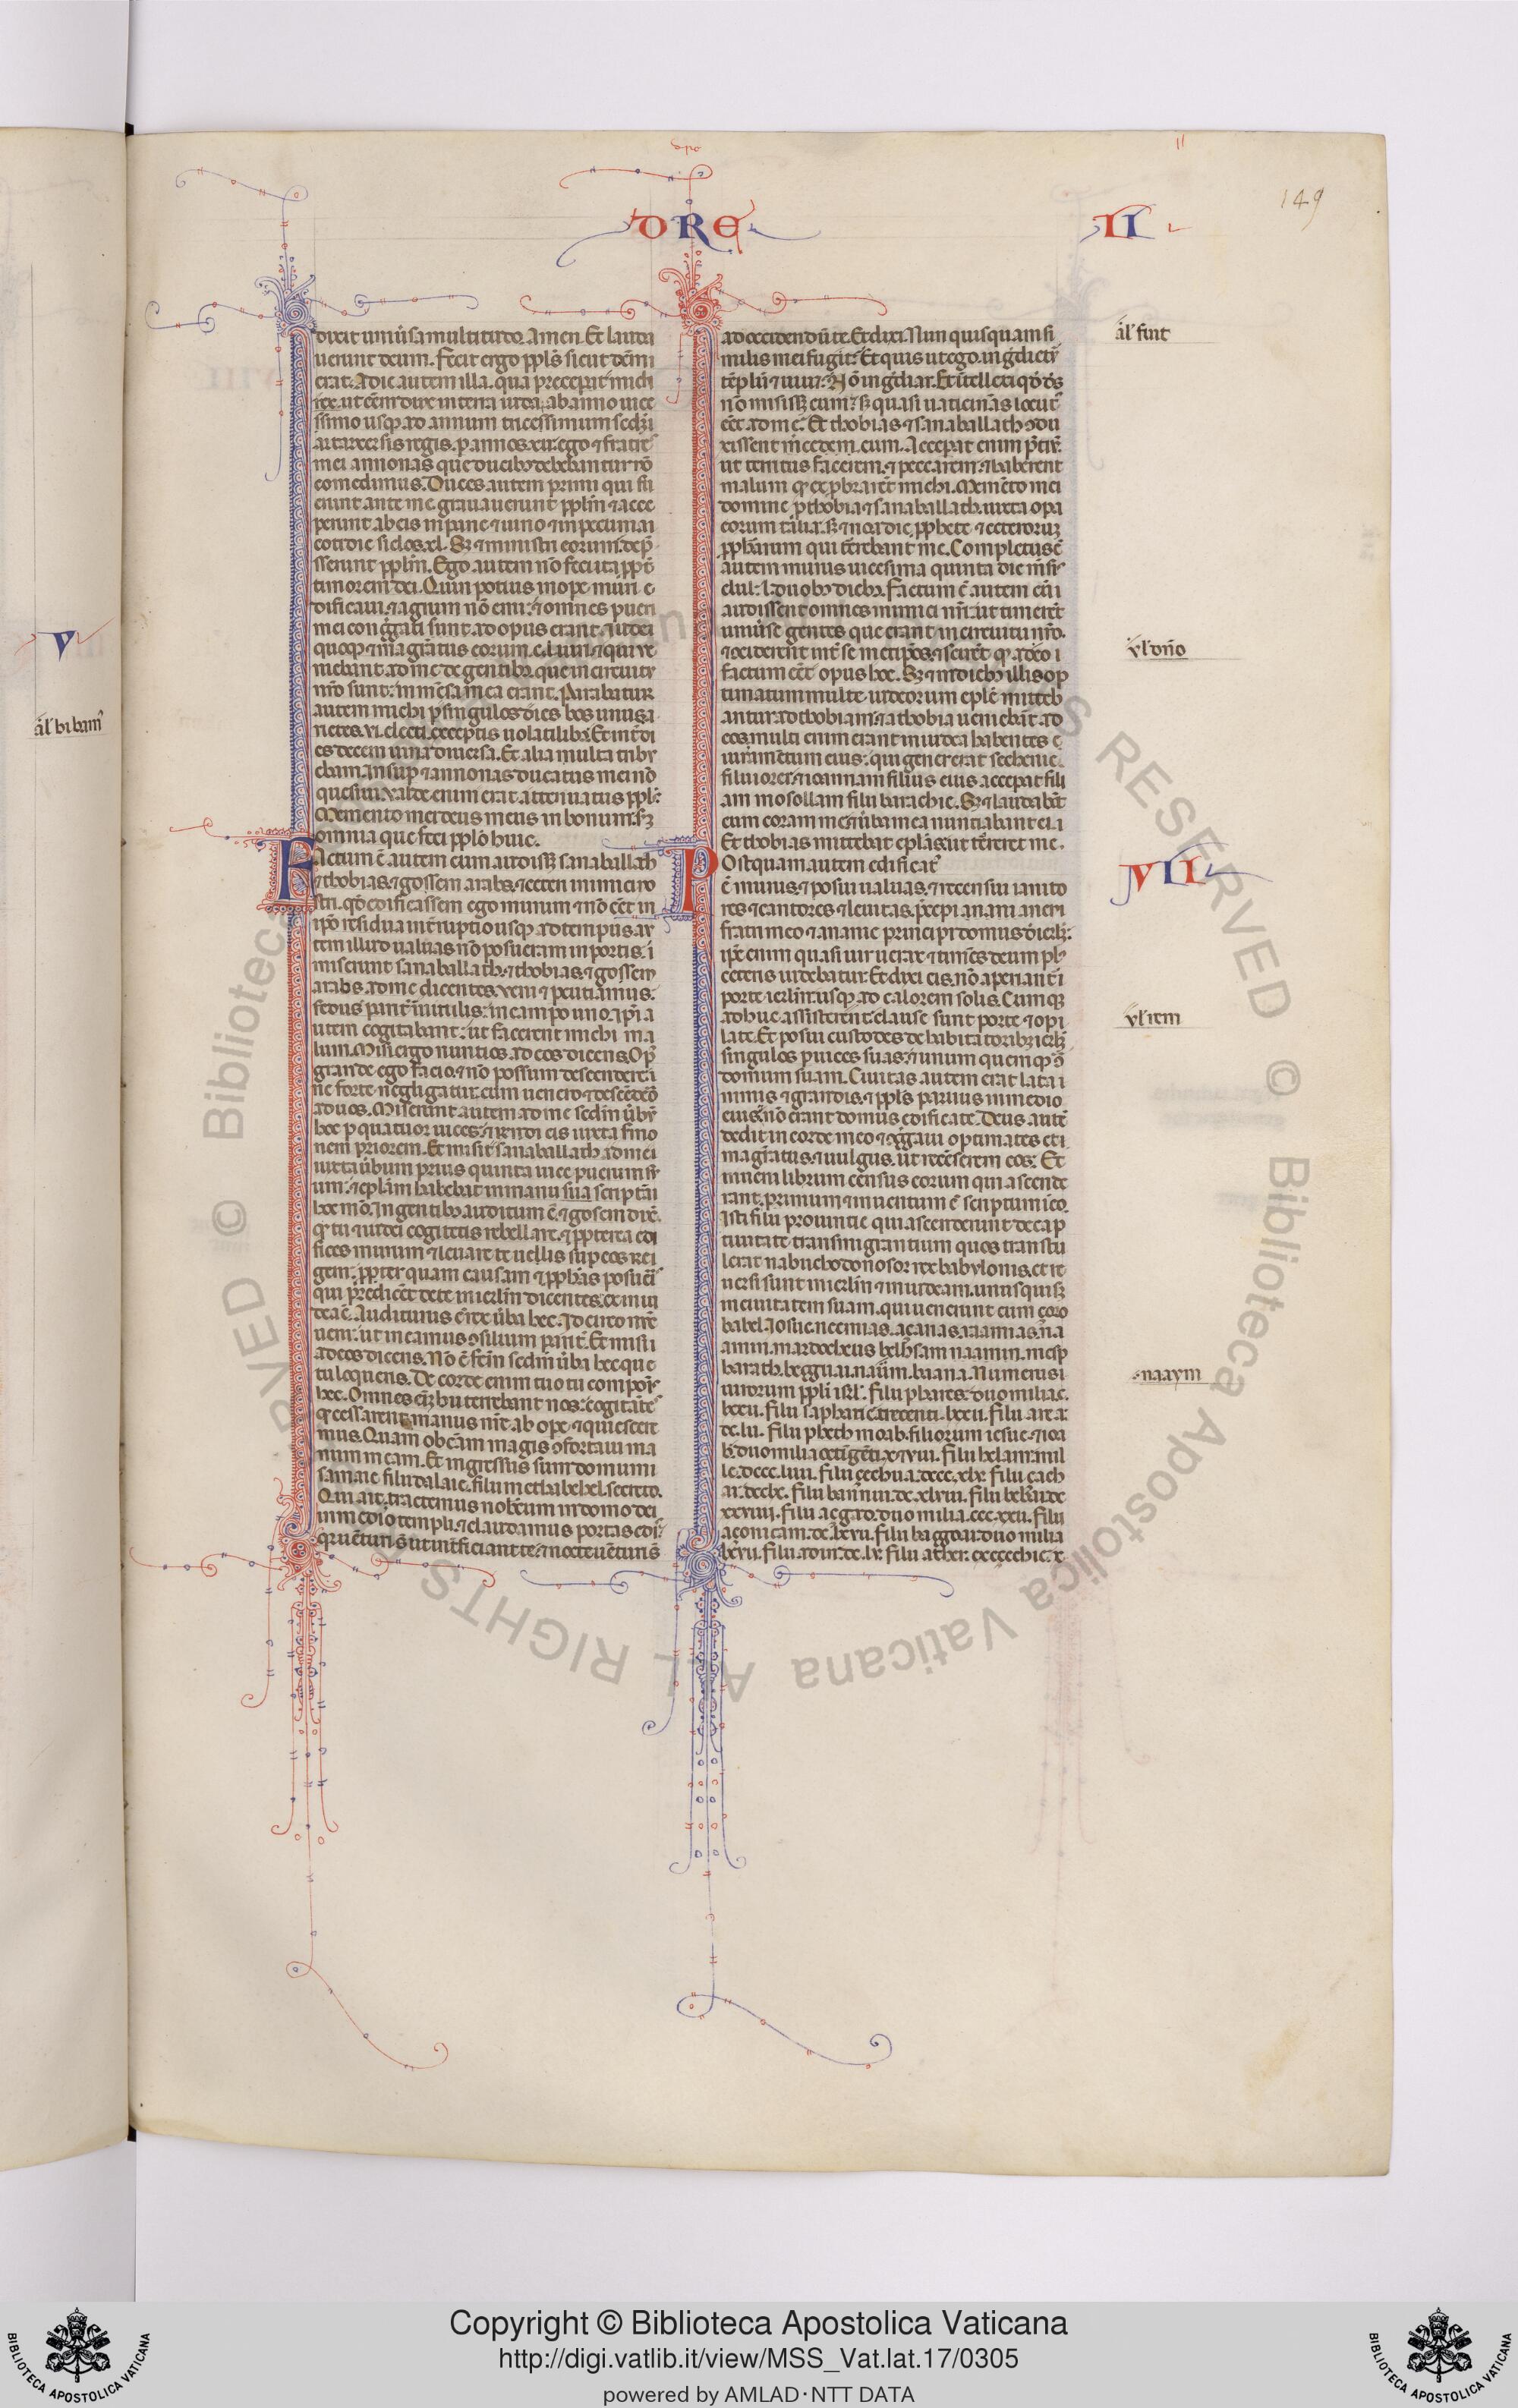 ꝺRE
II
149
V
al' bibam
dixit uniũsa multitudo. Amen. Et lauda
uerunt deum. Fecit ergo ppl̃s sicut dc̃m
erat. A die autem illa. qua preceperat michi
rex. ut eẽm dux in terra iuda. ab anno uice
simo usq; ad annum tricessimum sedm̃
artaxersis regis. p annos. xii. ego ⁊ fratres
mei annonas que ducib; debebantur nõ
comedimus. Duces autem primi qui fu
erunt ante me grauauerunt ppl̃m ⁊ acce
perunt ab eis in pane ⁊ uino ⁊ in pecunia
cotidie siclos. xl. Sꝫ ⁊ ministri eorum dep̃
sserunt ppl̃m. Ego autem nõ feci ita ppt̃
timorem dei. Quin potius in ope muri e
dificaui. ⁊ agrum nõ emi. ⁊ omnes pueri
mei congr̃ati sunt. ad opus erant. Iudei
quoq; ⁊ magr̃atus eorum. c. l. uiri. ⁊ qui ue
niebant ad me de gentib; que in circuitu
nr̃o sunt. in mẽsa mea erant. Parabatur
autem michi p singulos dies bos unus. a
rietes. vi. electi. exceptis uolatilib;. Et int̃ di
es decem uina diuersa. Et alia multa tribu
ebam. Insup ⁊ annonas ducatus mei nõ
quesiui. Valde enim erat attenuatus ppl̃s.
Memento mei deus meus in bonum. sꝫ
omnia que feci ppl̃o huic.
Factum ẽ autem cum audissꝫ sanaballath
⁊ thobias. ⁊ gossem arabs. ⁊ ceteri inimici no
stri. qđ edificassem ego murum. ⁊ nõ eẽt in
ip̃o residua int̃ruptio. usq; ad tempus au
tem illud ualuas nõ posueram in portis.
miserunt sanaballath. ⁊ thobias. ⁊ gossem
arabs. ad me dicentes. Veni ⁊ pcutiamus
fedus parit̃ in uitulis. in campo uno. Ip̃i a
utem cogitabant. ut facerent michi ma
lum. Misi ergo nuntios ad eos dicens. Op̃
grande ego facio. ⁊ nõ possum descendere.
ne forte negligatur. cum uenero ⁊ descẽdero
ad uos. Miserunt autem ad me sedm̃ ũbũ
hoc p quatuor uices. ⁊ rñdi eis iuxta s̃mo
nem priorem. Et misit sanaballath ad me
iuxta ũbum prius quinta uice puerum su
um. ⁊ epl̃am habebat in manu sua scriptã
hoc mõ. In gentib; auditum ẽ. ⁊ gosem dix̃.
qꝛ tu ⁊ iudei cogitetis rebellare. ⁊ pp̃terea edi
fices murum. ⁊ leuare te uelis sup eos re
gem. pp̃ter quam causam ⁊ pp̃has posueris
qui predicẽt de te in ierl̃m dicentes. rex in iu
dea ẽ. Auditurus ẽ rex ũba hec. Idcirco nũc
ueni. ut ineamus ꝯsilium parit̃. Et misi
ad eos dicens. Nõ ẽ fc̃m sedm̃ ũba hec que
tu loqueris. De corde enim tuo tu componis
hec. Omnes eñ hii terrebant nos. cogitãtes
qꝛ cessarent manus nr̃e ab ope. ⁊ quiescere
mus. Quam ob cãm magis ꝯfortaui ma
nus meas. Et ingressus sum domum
samaie filii dalaie. filii methabehel. secreto.
Qui ait. tractemus nobc̃um in domo dei
in medio templi. ⁊ claudamus portas edis.
qꝛ uẽturi s̃t ut int̃ficiant te. ⁊ nocte uẽturi s̃
ad occidendũ te. Et dixi. Nun quisquam si
milis mei fugit? Et quis ut ego. ingr̃diet̃
tẽplũ ⁊ uiuet? Nõ ingr̃diar. Et ĩtellexi qđ dñs
nõ misissꝫ eum. sꝫ quasi uaticinãs locut̃
eẽt ad me. Et thobias ⁊ sanaballath ꝯdu
xissent m̃cedem eum. Acceperat enim p̃ciũ.
ut territus facerem. ⁊ peccarem. ⁊ haberent
malum qꝛ exprobrarẽt michi. Memẽto mei
domine p thobia ⁊ sanaballath. iuxta opa
eorum talia. sꝫ ⁊ noadie pp̃hete. ⁊ ceterorum
pp̃harum qui terrebant me. Completus ẽ
autem murus uicesima quinta die m̃sis
elul. l. duob; dieb;. Factum ẽ autem cũ
audissent omnes inimici nr̃i. ut timerẽt
uniũse gentes que erant in circuitu nr̃o.
⁊ ceciderent int̃ se metip̃os. ⁊ scirẽt qꝛ a deo
factum eẽt opus hoc. Sꝫ ⁊ in dieb; illis op
timatum multe iudeorum epl̃e mitteb
antur ad thobiam. ⁊ a thobia ueniebãt ad
eos. multi enim erant in iudea habentes
iuramẽtum eius. qui gener erat sechenie
filii iorei. ⁊ ioannam filius eius acceperat fili
am mosollam filii barachie. Sꝫ ⁊ laudabãt
eum coram me. ⁊ ũba mea nuntiabant ei.
Et thobias mittebat epl̃as. ut terreret me.
Postquam autem edificat̃
ẽ murus. ⁊ posui ualuas. ⁊ recensui ianito
res ⁊ cantores ⁊ leuitas. p̃cepi anani
fratri meo ⁊ ananie principi domus de ierl̃m.
ip̃e enim quasi uir uerax ⁊ timẽs deum pl̃
ceteris uidebatur. Et dixi eis. nõ aperiant̃
porte ierl̃m usq; ad calorem solis. Cumq;
adhuc assisterent. clause sunt porte ⁊ opi
late. Et posui custodes de habitatorib; ierl̃m
singulos p uices suas. ⁊ unum quemq; ꝯ
domum suam. Ciuitas autem erat lata
nimis ⁊ grandis. ⁊ ppl̃s paruus in medio
eius. ⁊ nõ erant domus edificate. Deus autẽ
dedit in corde meo ⁊ ꝯgr̃gaui optimates et
magr̃atus ⁊ uulgus. ut recẽserem eos. Et
inueni librum census eorum qui ascende
rant primum ⁊ inuentum ẽ scriptum in eo.
Isti filii prouintie qui ascenderunt de cap
tiuitate transmigrantium quos transtu
lerat nabuchodonosor rex babylonis. et re
uersi sunt in ierl̃m ⁊ in iudeam. unusquisꝫ
in ciuitatem suam. qui uenerunt cum çoro
babel. Iosue. neemias. açarias. raamias. na
amni. mardocheus. belbsam. naamin. mesp
harath. beggoai. naũm. baana. Numerus
uirorum ppl̃i isr̃l. filii pharos. duo milia c.
lxxii. filii saphatie. trecenti. lxxii. filii area.
dc. lii. filii pheth moab. filiorum iesue. ⁊ ioa
b. duo milia octĩgẽti. x ⁊ viii. filii helam. mil
le. dccc. liiii. filii eçechua. dccc. xlv. filii çach
ai. dcclx. filii bannui. dc. xlviii. filii bebai. dc
xxviii. filii açgad. duo milia. ccc. xxii. filii
açonicam. dc. lxvii. filii baggoai. duo milia
lxvii. filii adin. dc. lv. filii ather. eçechie. x
al' sunt
vl' dño
VII
vl' item
naaym
Copyright © Biblioteca Apostolica Vaticana
http://digi.vatlib.it/view/MSS_Vat.lat.17/0305
powered by AMLAD·NTT DATA